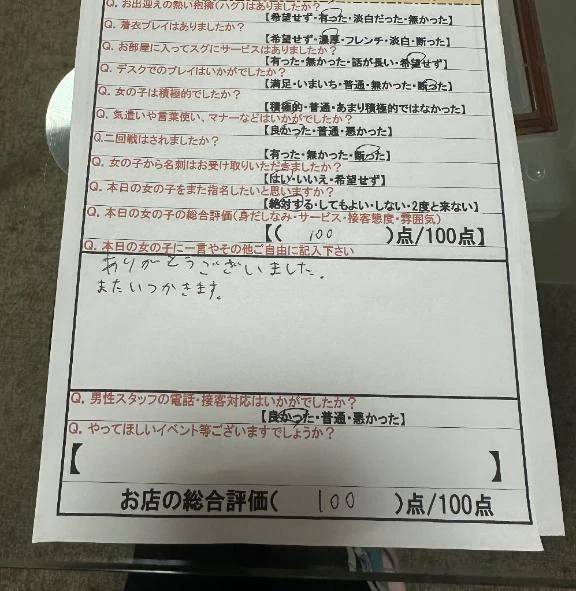 Q. お出迎えの熱い抱擁(ハグ)はありましたか?
【希望せず・有った・淡白だった・無かった】
Q. 着衣プレイはありましたか?
【希望せず・濃厚・フレンチ・淡白・断った】
Q. お部屋に入ってスグにサービスはありましたか?
【有った・無かった・話が長い・希望せず】
Q. デスクでのプレイはいかがでしたか?
【満足・いまいち・普通・無かった・断った】
Q. 女の子は積極的でしたか?
【積極的・普通・あまり積極的ではなかった】
Q. 気遣いや言葉使い、マナーなどはいかがでしたか?
【良かった・普通・悪かった】
Q. 二回戦はされましたか?
【有った・無かった・断った】
Q. 女の子から名刺はお受け取りいただきましたか?
【はい・いいえ・希望せず】
Q. 本日の女の子をまた指名したいと思いますか?
【絶対する・してもよい・しない・2度と来ない】
Q. 本日の女の子の総合評価(身だしなみ・サービス・接客態度・雰囲気)
【( 100 )点/100点】
Q. 本日の女の子に一言やその他ご自由に記入下さい
ありがとうございました。
またいつかきます。
Q. 男性スタッフの電話・接客対応はいかがでしたか?
【良かった・普通・悪かった】
Q. やってほしいイベント等ございますでしょうか?
【 】
お店の総合評価( 100 )点/100点